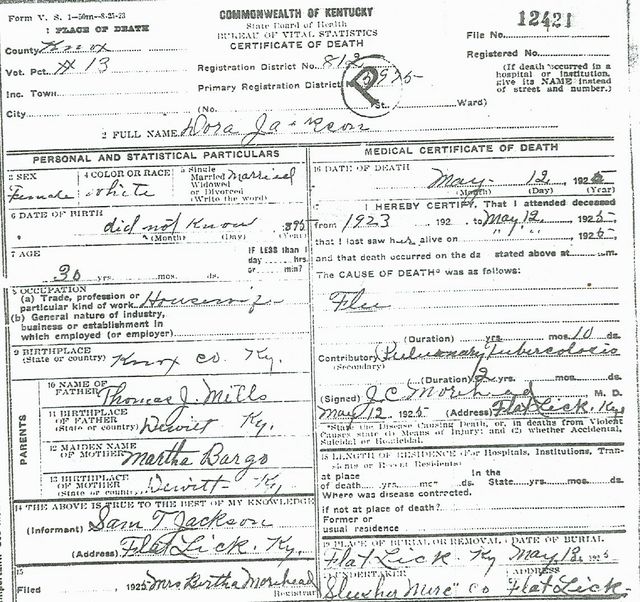 Form V. S. 1—50m—8-25-23
COMMONWEALTH OF KENTUCKY
State Board of Health
BUREAU OF VITAL STATISTICS
CERTIFICATE OF DEATH
12421
File No.
Registered No.
(If death occurred in a hospital or institution, give its NAME instead of street and number.)
1 PLACE OF DEATH
County Knox
Vot. Pct. #13
Inc. Town
City
Registration District No. 812
Primary Registration District No. 3925
P
(No. St. Ward)
2 FULL NAME Dora Jackson
PERSONAL AND STATISTICAL PARTICULARS
3 SEX
Female
4 COLOR OR RACE
White
5 Single
Married
Widowed
or Divorced
(Write the word)
Married
6 DATE OF BIRTH
did not know 1895
(Month) (Day) (Year)
7 AGE
30 yrs. mos. ds.
IF LESS than 1
day hrs.
or min?
8 OCCUPATION
(a) Trade, profession or
particular kind of work Housewife
(b) General nature of industry,
business or establishment in
which employed (or employer)
9 BIRTHPLACE
(State or country) Knox Co Ky.
PARENTS
10 NAME OF
FATHER Thomas J. Mills
11 BIRTHPLACE
OF FATHER
(State or country) Dewitt Ky.
12 MAIDEN NAME
OF MOTHER Martha Bargo
13 BIRTHPLACE
OF MOTHER
(State or country) Dewitt Ky
14 THE ABOVE IS TRUE TO THE BEST OF MY KNOWLEDGE
(Informant) Sam T Jackson
(Address) Flat Lick. Ky.
15
Filed 1925 Mrs Bertha Morehead
Registrar
MEDICAL CERTIFICATE OF DEATH
16 DATE OF DEATH
May 12 1925
(Month) (Day) (Year)
I HEREBY CERTIFY, That I attended deceased
from 1923 192 to May 12, 1925,
that I last saw her alive on " " 1925
and that death occurred on the da stated above at m.
The CAUSE OF DEATH* was as follows:
Flu
(Duration) yrs. mos. 10 ds.
Contributory Pulmonary Tubercolosis
(Secondary)
(Duration) 2 yrs. mos. ds.
(Signed) J. C. Morehead M. D.
May 12 1925 (Address) Flat Lick, Ky
*State the Disease Causing Death, or, in deaths from Violent
Causes state (1) Means of Injury; and (2) whether Accidental,
Suicidal or Homicidal.
18 LENGTH OF RESIDENCE (For Hospitals, Institutions, Transients or Recent Residents)
at place In the
of death yrs. mos. ds. State yrs. mos. ds.
Where was disease contracted,
if not at place of death?
Former or
usual residence
19 PLACE OF BURIAL OR REMOVAL DATE OF BURIAL
Flat Lick. Ky May 13, 1925
20 UNDERTAKER ADDRESS
Co Flat Lick